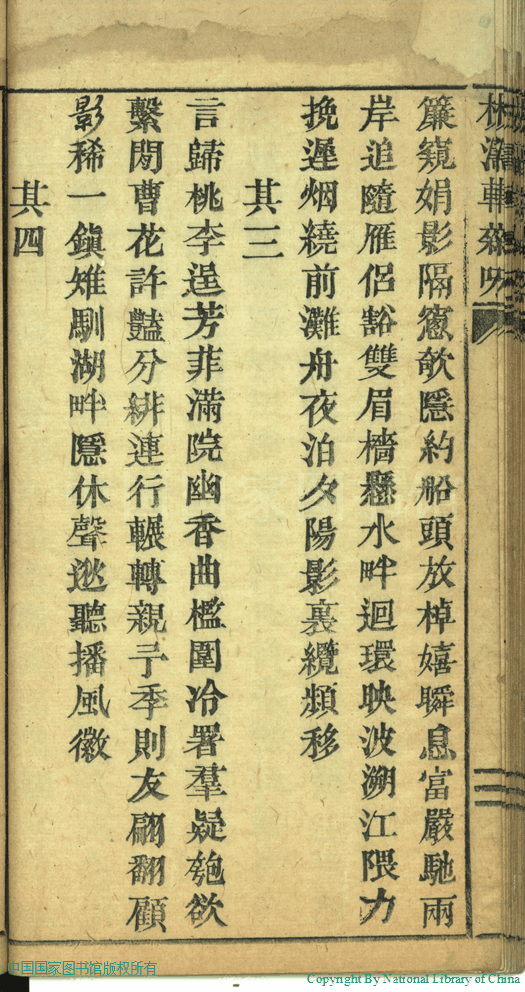 簾窺娟影隔窓欹隱約船頭放棹嬉瞬息富嚴馳兩
岸追隨雁侶豁雙眉檣懸水畔迴環映波溯江隈力
挽遲烟繞前灘舟夜泊夕陽影裏纜頻移
其三
言歸桃李逞芳菲滿院幽香曲檻圍冷署羣疑匏欲
繫閒曹花許豔分緋連行輾轉親予季則友翩翻顧
影稀一鎮雉馴湖畔隱休聲逖聽播風徽
其四
中国国家图书馆版权所有
Copyright By National Library of China